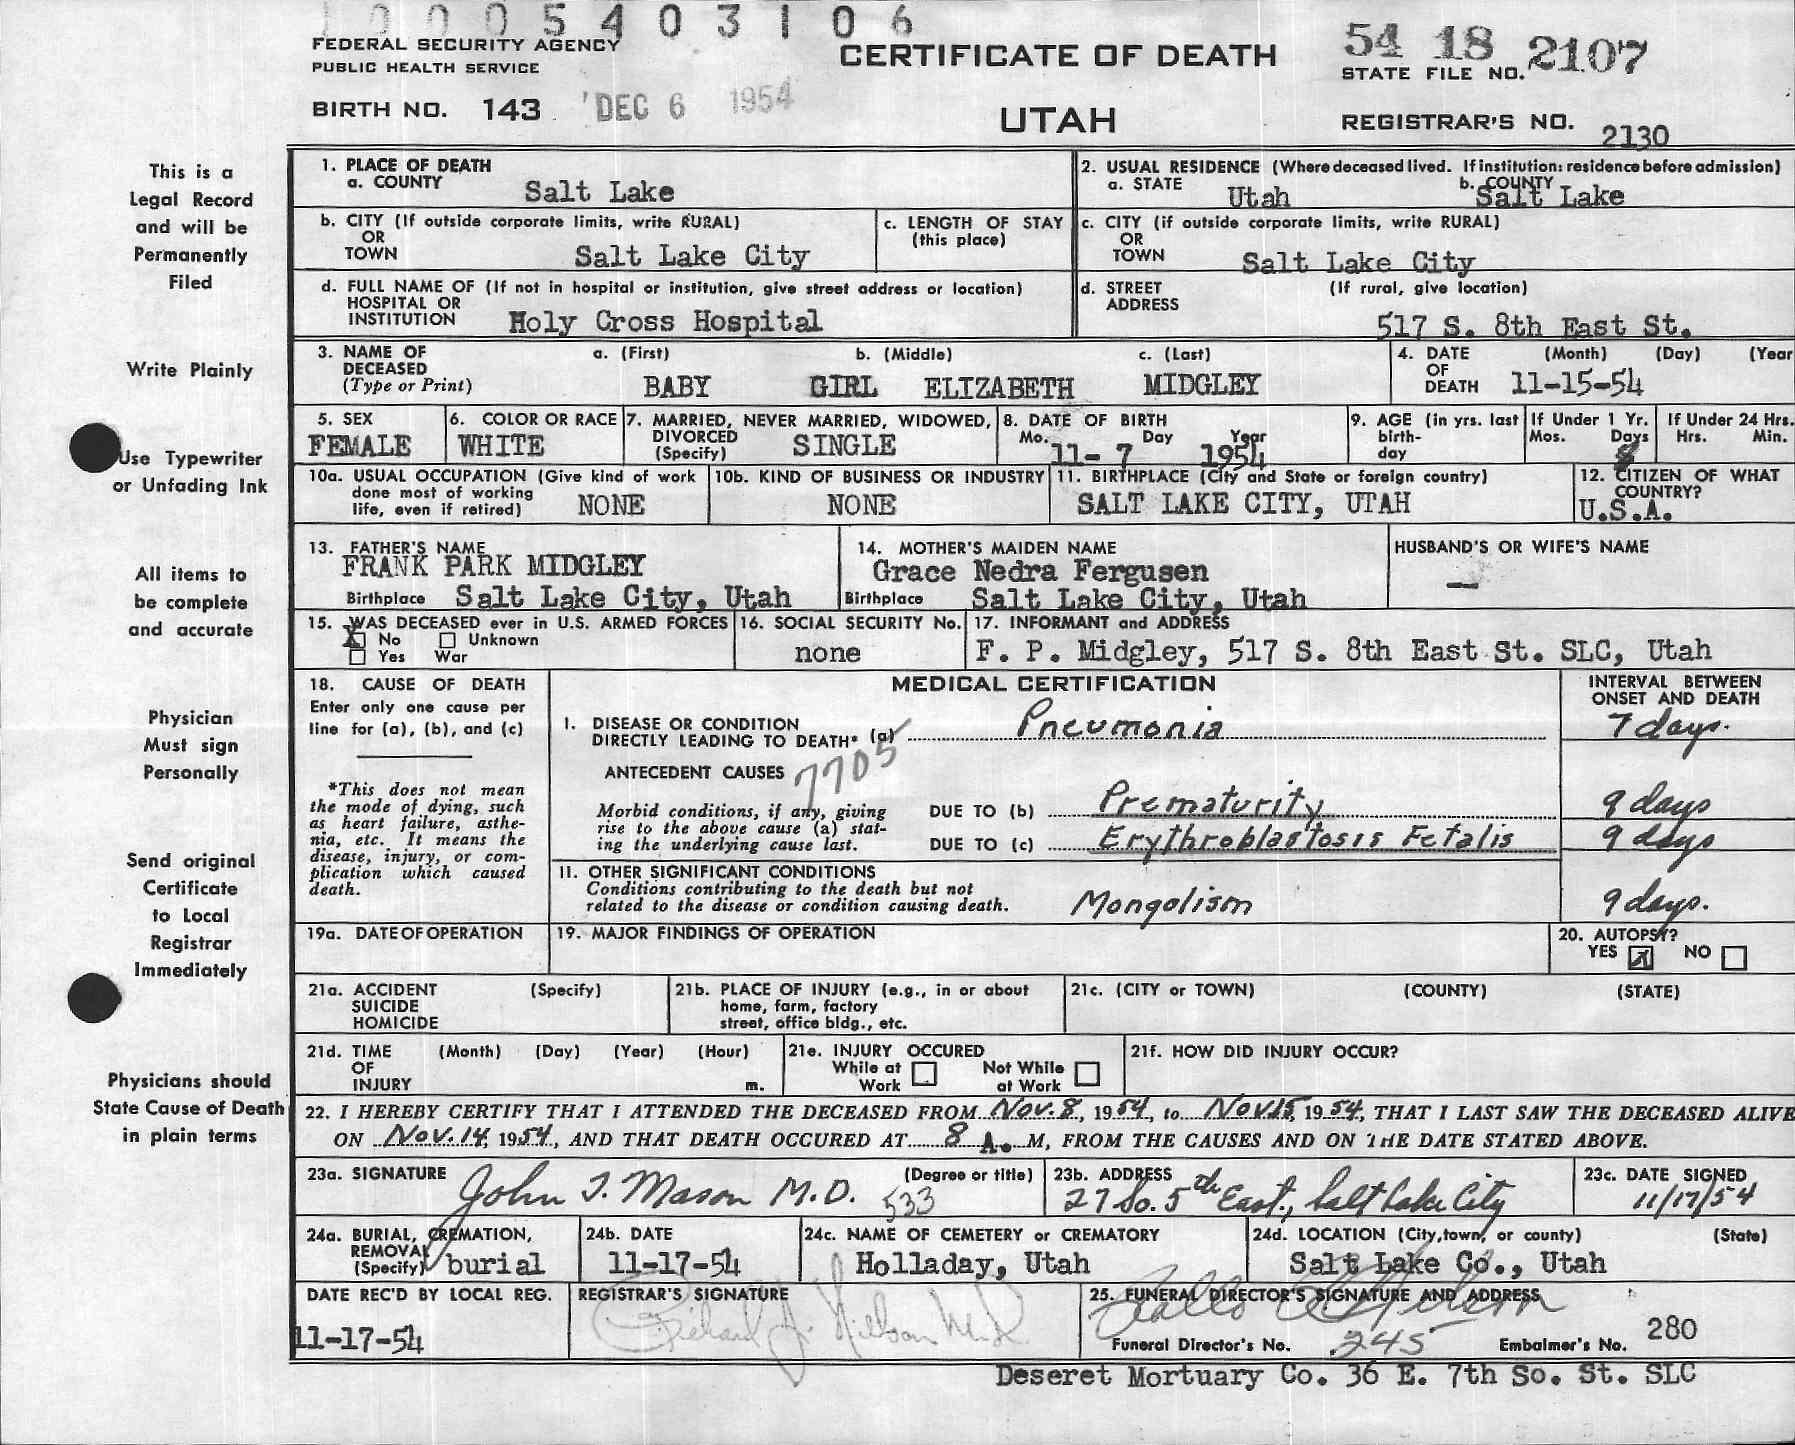 0005403106
FEDERAL SECURITY AGENCY
PUBLIC HEALTH SERVICE
CERTIFICATE OF DEATH
54 18 2107
STATE FILE NO.
BIRTH NO. 143 DEC 6 1954
UTAH
REGISTRAR'S NO. 2130
This is a
Legal Record
and will be
Permanently
Filed
Write Plainly
Use Typewriter
or Unfading Ink
All items to
be complete
and accurate
Physician
Must sign
Personally
Send original
Certificate
to Local
Registrar
Immediately
Physicians should
State Cause of Death
in plain terms
1. PLACE OF DEATH
a. COUNTY Salt Lake
2. USUAL RESIDENCE (Where deceased lived. If institution: residence before admission)
a. STATE Utah b. COUNTY Salt Lake
b. CITY (If outside corporate limits, write RURAL)
OR
TOWN Salt Lake City
c. LENGTH OF STAY
(this place)
c. CITY (if outside corporate limits, write RURAL)
OR
TOWN Salt Lake City
d. FULL NAME OF (If not in hospital or institution, give street address or location)
HOSPITAL OR
INSTITUTION Holy Cross Hospital
d. STREET (If rural, give location)
ADDRESS
517 S. 8th East St.
3. NAME OF a. (First) b. (Middle) c. (Last)
DECEASED
(Type or Print) BABY GIRL ELIZABETH MIDGLEY
4. DATE (Month) (Day) (Year
OF
DEATH 11-15-54
5. SEX
FEMALE
6. COLOR OR RACE
WHITE
7. MARRIED, NEVER MARRIED, WIDOWED,
DIVORCED
(Specify) SINGLE
8. DATE OF BIRTH
Mo. Day Year
11- 7 1954
9. AGE (in yrs. last
birth-
day
If Under 1 Yr.
Mos. Days
8
If Under 24 Hrs.
Hrs. Min.
10a. USUAL OCCUPATION (Give kind of work
done most of working
life, even if retired) NONE
10b. KIND OF BUSINESS OR INDUSTRY
NONE
11. BIRTHPLACE (City and State or foreign country)
SALT LAKE CITY, UTAH
12. CITIZEN OF WHAT
COUNTRY?
U.S.A.
13. FATHER'S NAME
FRANK PARK MIDGLEY
Birthplace Salt Lake City, Utah
14. MOTHER'S MAIDEN NAME
Grace Nedra Fergusen
Birthplace Salt Lake City, Utah
HUSBAND'S OR WIFE'S NAME
—
15. WAS DECEASED ever in U.S. ARMED FORCES
X No Unknown
Yes War
16. SOCIAL SECURITY No.
none
17. INFORMANT and ADDRESS
F. P. Midgley, 517 S. 8th East St. SLC, Utah
18. CAUSE OF DEATH
Enter only one cause per
line for (a), (b), and (c)
*This does not mean
the mode of dying, such
as heart failure, asthe-
nia, etc. It means the
disease, injury, or com-
plication which caused
death.
MEDICAL CERTIFICATION
INTERVAL BETWEEN
ONSET AND DEATH
I. DISEASE OR CONDITION
DIRECTLY LEADING TO DEATH* (a) Pneumonia 7 days.
ANTECEDENT CAUSES 7705
Morbid conditions, if any, giving
rise to the above cause (a) stat-
ing the underlying cause last.
DUE TO (b) Prematurity 9 days
DUE TO (c) Erythroblastosis Fetalis 9 days
II. OTHER SIGNIFICANT CONDITIONS
Conditions contributing to the death but not
related to the disease or condition causing death. Mongolism 9 days.
19a. DATE OF OPERATION
19. MAJOR FINDINGS OF OPERATION
20. AUTOPSY?
YES X NO
21a. ACCIDENT (Specify)
SUICIDE
HOMICIDE
21b. PLACE OF INJURY (e.g., in or about
home, farm, factory
street, office bldg., etc.
21c. (CITY or TOWN) (COUNTY) (STATE)
21d. TIME (Month) (Day) (Year) (Hour)
OF
INJURY m.
21e. INJURY OCCURED
While at Not While
Work at Work
21f. HOW DID INJURY OCCUR?
22. I HEREBY CERTIFY THAT I ATTENDED THE DECEASED FROM Nov. 8, 1954, to Nov 15, 1954, THAT I LAST SAW THE DECEASED ALIVE
ON Nov. 14, 1954, AND THAT DEATH OCCURED AT 8 A. M, FROM THE CAUSES AND ON THE DATE STATED ABOVE.
23a. SIGNATURE (Degree or title)
John J. Mason M.D. 533
23b. ADDRESS
27 So. 5th East, Salt Lake City
23c. DATE SIGNED
11/17/54
24a. BURIAL, CREMATION,
REMOVAL
(Specify) burial
24b. DATE
11-17-54
24c. NAME OF CEMETERY or CREMATORY
Holladay, Utah
24d. LOCATION (City, town, or county) (State)
Salt Lake Co., Utah
DATE REC'D BY LOCAL REG.
11-17-54
REGISTRAR'S SIGNATURE
25. FUNERAL DIRECTOR'S SIGNATURE AND ADDRESS
Funeral Director's No. 245 Embalmer's No. 280
Deseret Mortuary Co. 36 E. 7th So. St. SLC